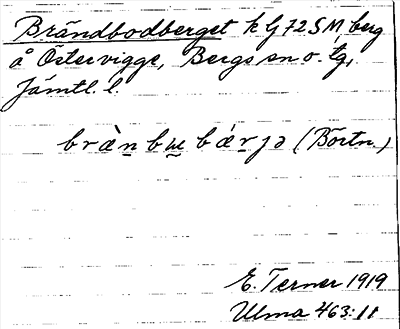 Brändbodberget k G 72 SM, berg
å Östervigge, Bergs sn o. tg,
Jämtl. l.
bràn̲ bu̲ bǽr̲jə (Börtn.)
E. Terner 1919
Ulma 463:11